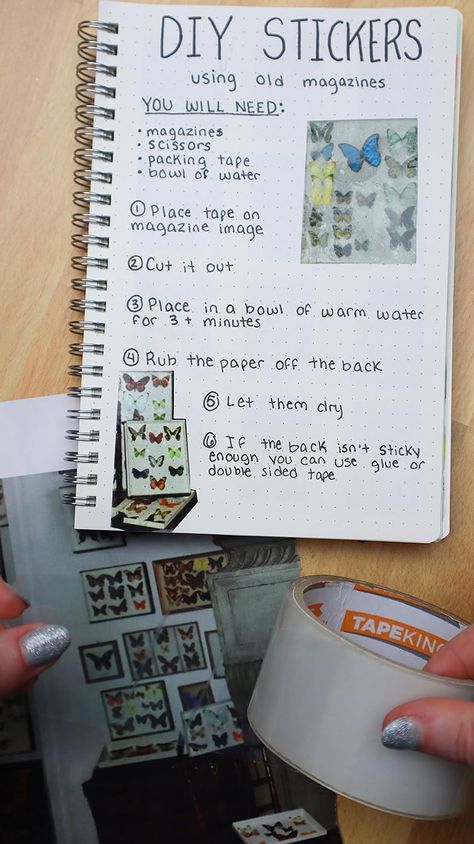 DIY STICKERS
using old magazines
YOU WILL NEED:
• magazines
• scissors
• packing tape
• bowl of water
① Place tape on
magazine image
② Cut it out
③ Place in a bowl of warm water
for 3+ minutes
④ Rub the paper off the back
⑤ Let them dry
⑥ If the back isn't sticky
enough you can use glue or
double sided tape
TAPEKING